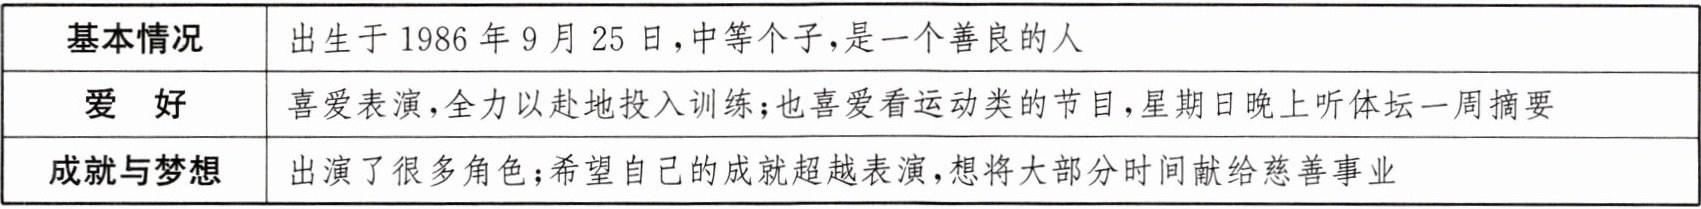 基本情况 出生于1986年9月25日,中等个子,是一个善良的人
爱 好 喜爱表演,全力以赴地投入训练;也喜爱看运动类的节目,星期日晚上听体坛一周摘要
成就与梦想 出演了很多角色;希望自己的成就超越表演,想将大部分时间献给慈善事业